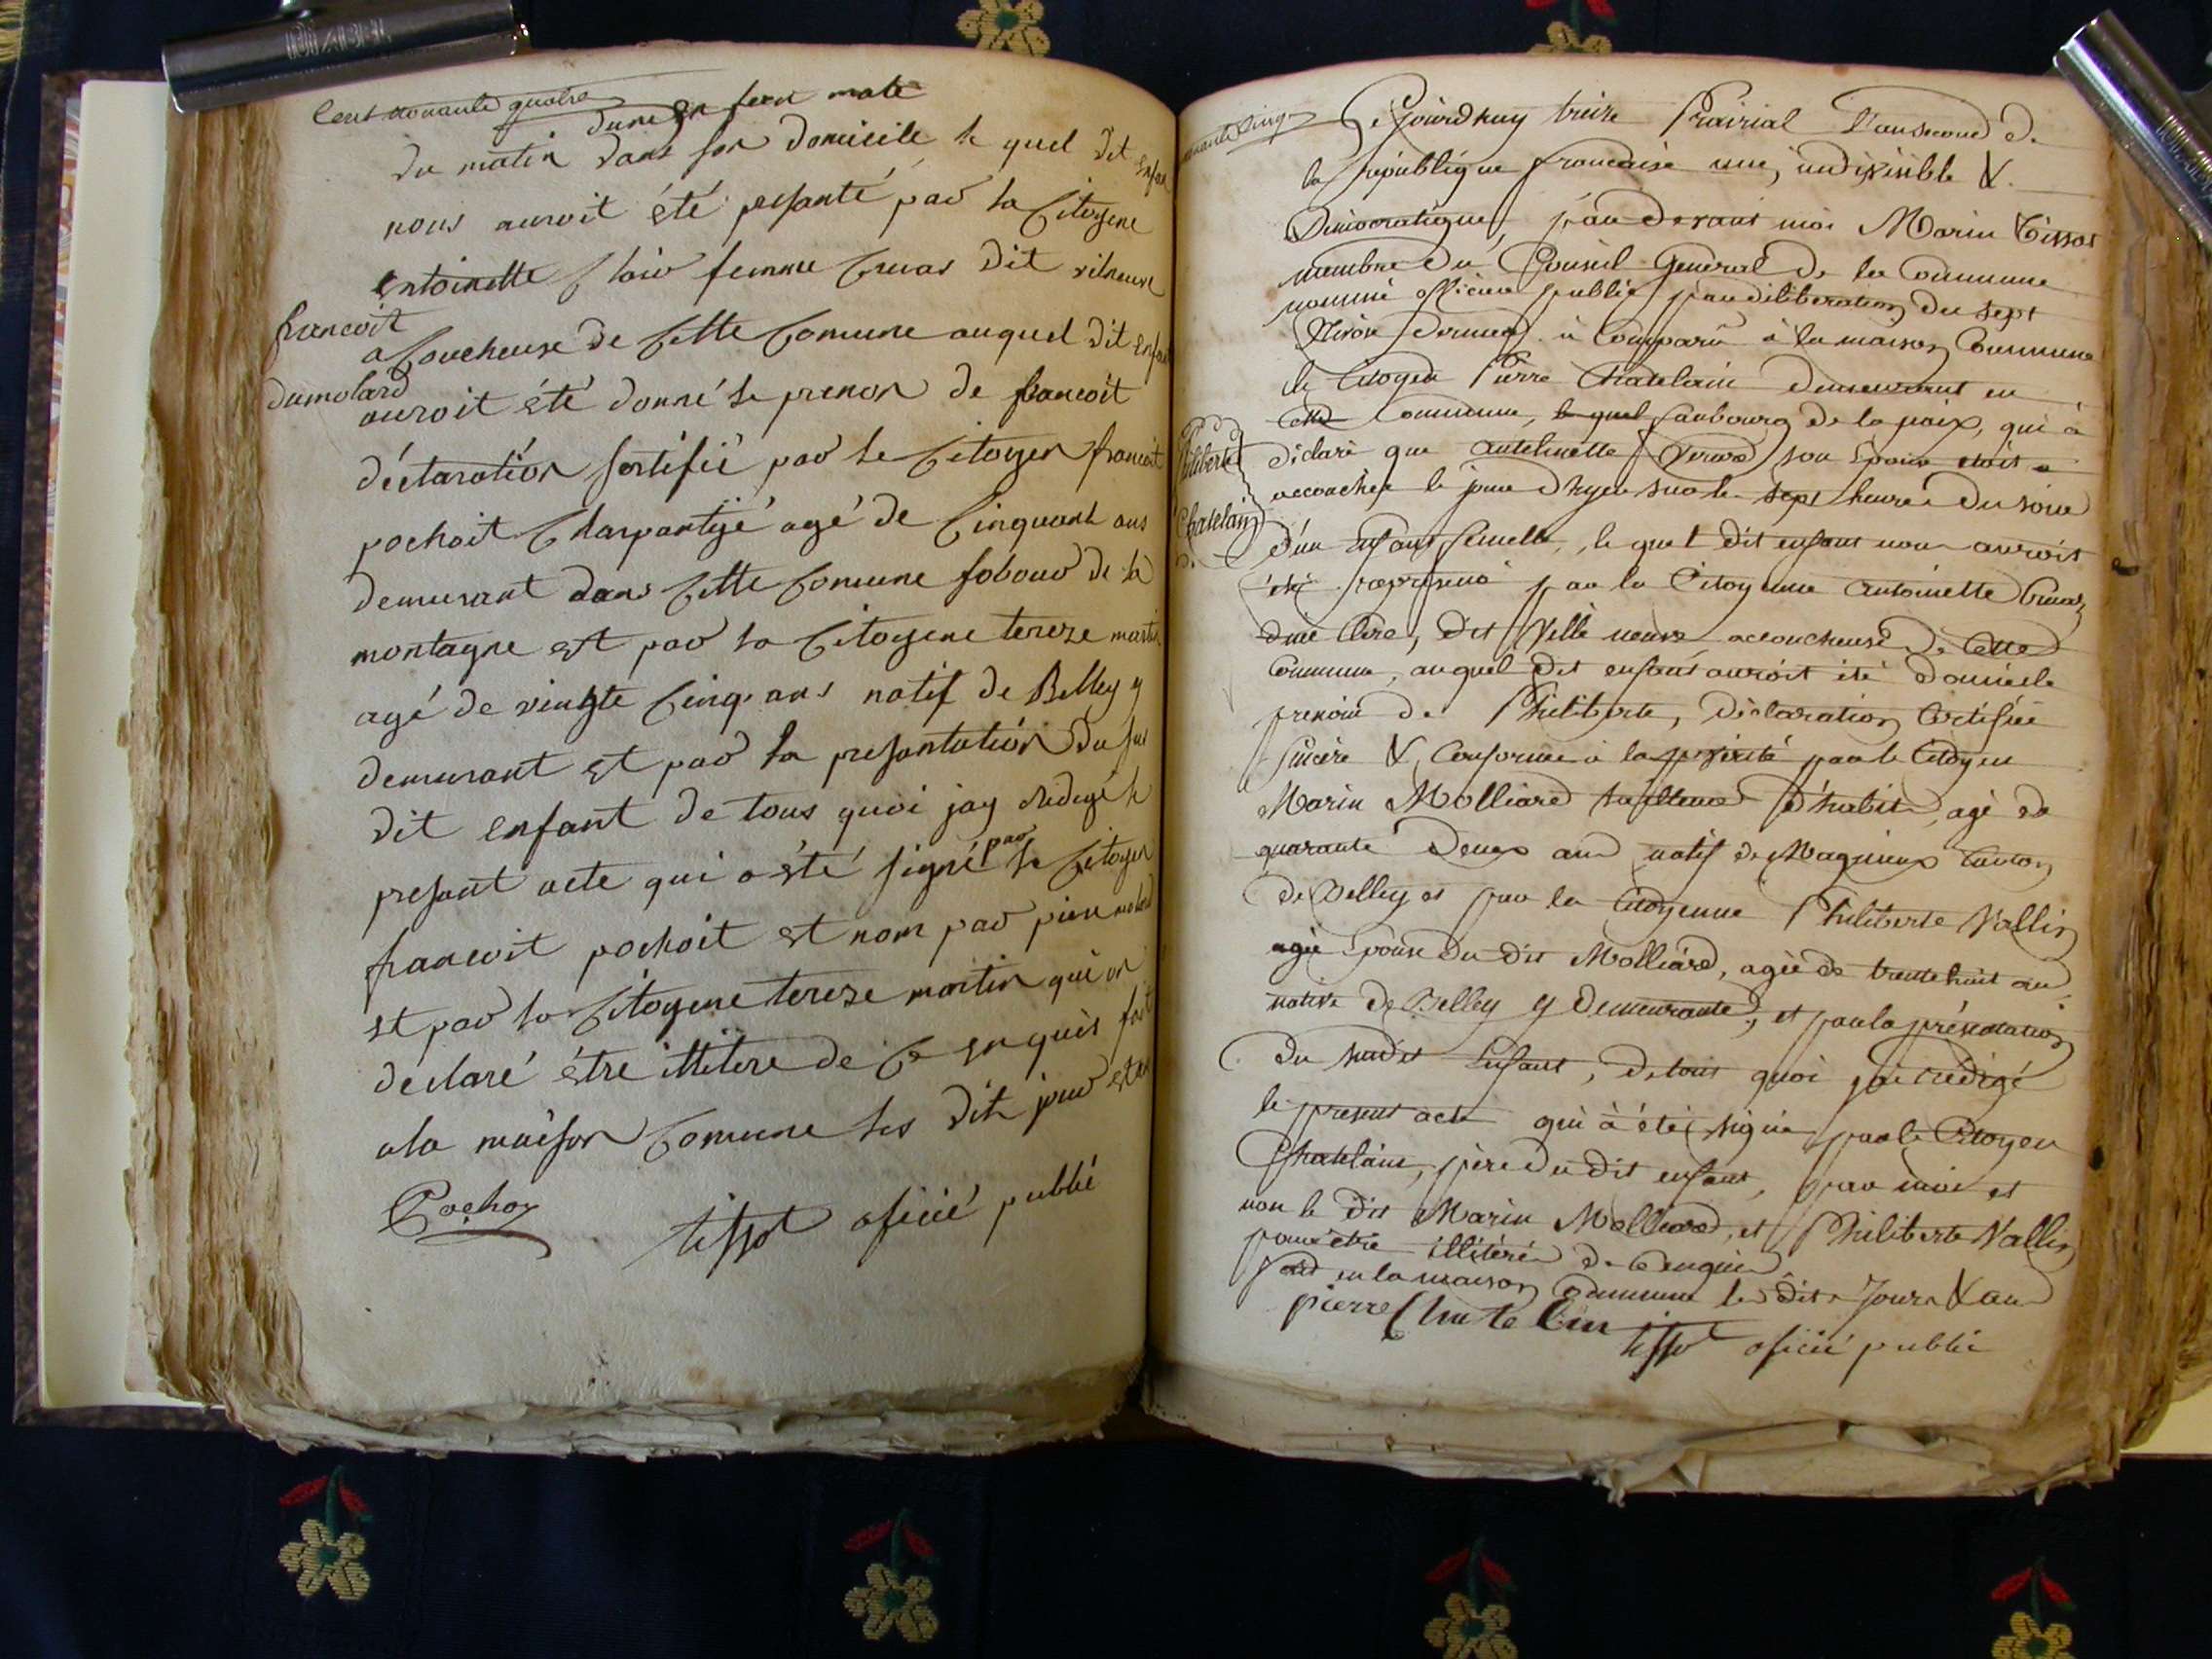 Cent nonante quatre
du matin dans son domicile le quel dit enfan
nous auroit été pesanté par la Citoyene
entoinette Claiv femme Cruas dit vilneuve
acoucheuse de Cette Comune auquel dit enfan
francoit
dumolard
auroit été donné le prenon de francoit
déctaration sertifié par le Citoyen francoit
pochoit Charpantÿé agé de Cinquant ans
demurant dans Cette Comune fobour de la
montagne est par la Citoyene tereze martin
agé de vingte Cinq ans natif de Belley y
demurant est par la presantatión du sus
dit enfant de tous quoi jay Redigé le
presant acte qui a été signé par le Citoyen
francoit pochoit est nom par piere
est par la Citoyene tereze martin qui on
declaré étre illitere de Ce enquis fait
a la maison Comune les dit jour est an
Pochoy
tissot oficié publié
nonante Cinq
Ce Jourdhuy treize Prairial L'an second de
la république francaise une, indivisible &
Démocratique, par devant moi Marin Tissot
membre du Conseil Général de la Commune
nommé officier public par déliberation du sept
Nivôse dernier à Comparu à la maison Commune
le Citoyen Pierre Chatelain demeurant en
Cette Commune, le quel faubourg de la paix, qui à
Philiberte
Chatelain
déclaré que antelmette son épouse étoit
accouchée le jour d'hyer sur le sept heures du soir
d'un enfant femelle, le quel dit enfant nous auroit
été représenté par la Citoyenne Antoinette Cruas,
née Clere, dit Ville neuve accoucheuse de Cette
Commune, auquel dit enfant auroit été donné le
prenom de Philiberte, déclaration Certifiée
sincère & Conforme à la verité par le Citoyen
Marin Molliard tailleur d'habits, agé de
quarante deux ans natif de Magnieux Canton
de Belley et par la Citoyenne Philiberte Vallin
agée épouse du dit Molliard, agée de trente huit ans
native de Belley y demeurante, et par la présentation
du susdit Enfant, de tout quoi j'ai rédigé
le present acte qui à été signé par le Citoyen
Chatelain, père du dit enfant, par moi et
non le dit Marin Molliard, et Philiberte Vallin
pour être illitéré de ce enquis
fait en la maison Commune les dits Jours & an
pierre Chatelain
tissot oficié publié